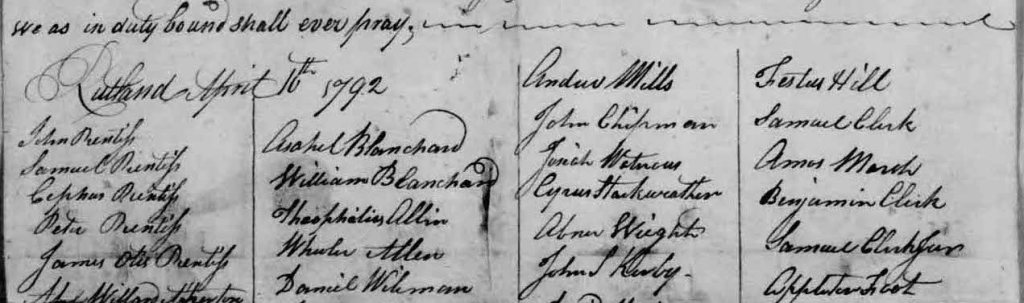 we as in duty bound shall ever pray,
Rutland April 16th 1792
John Prentiss
Samuel Prentiss
Cephas Prentiss
Peter Prentiss
James Otis Prentiss
Willard Atherton
Asahel Blanchard
William Blanchard
Theophilus Allin
Wheeler Allen
Daniel Wileman
Andus Mills
John Chipman
Josiah
Cyrus Starkweather
Abner Wright
John S Kirby
Festus Hill
Samuel Clerk
Amos March
Benjamin Clerk
Samuel Clerk Jur
Appleton Foot